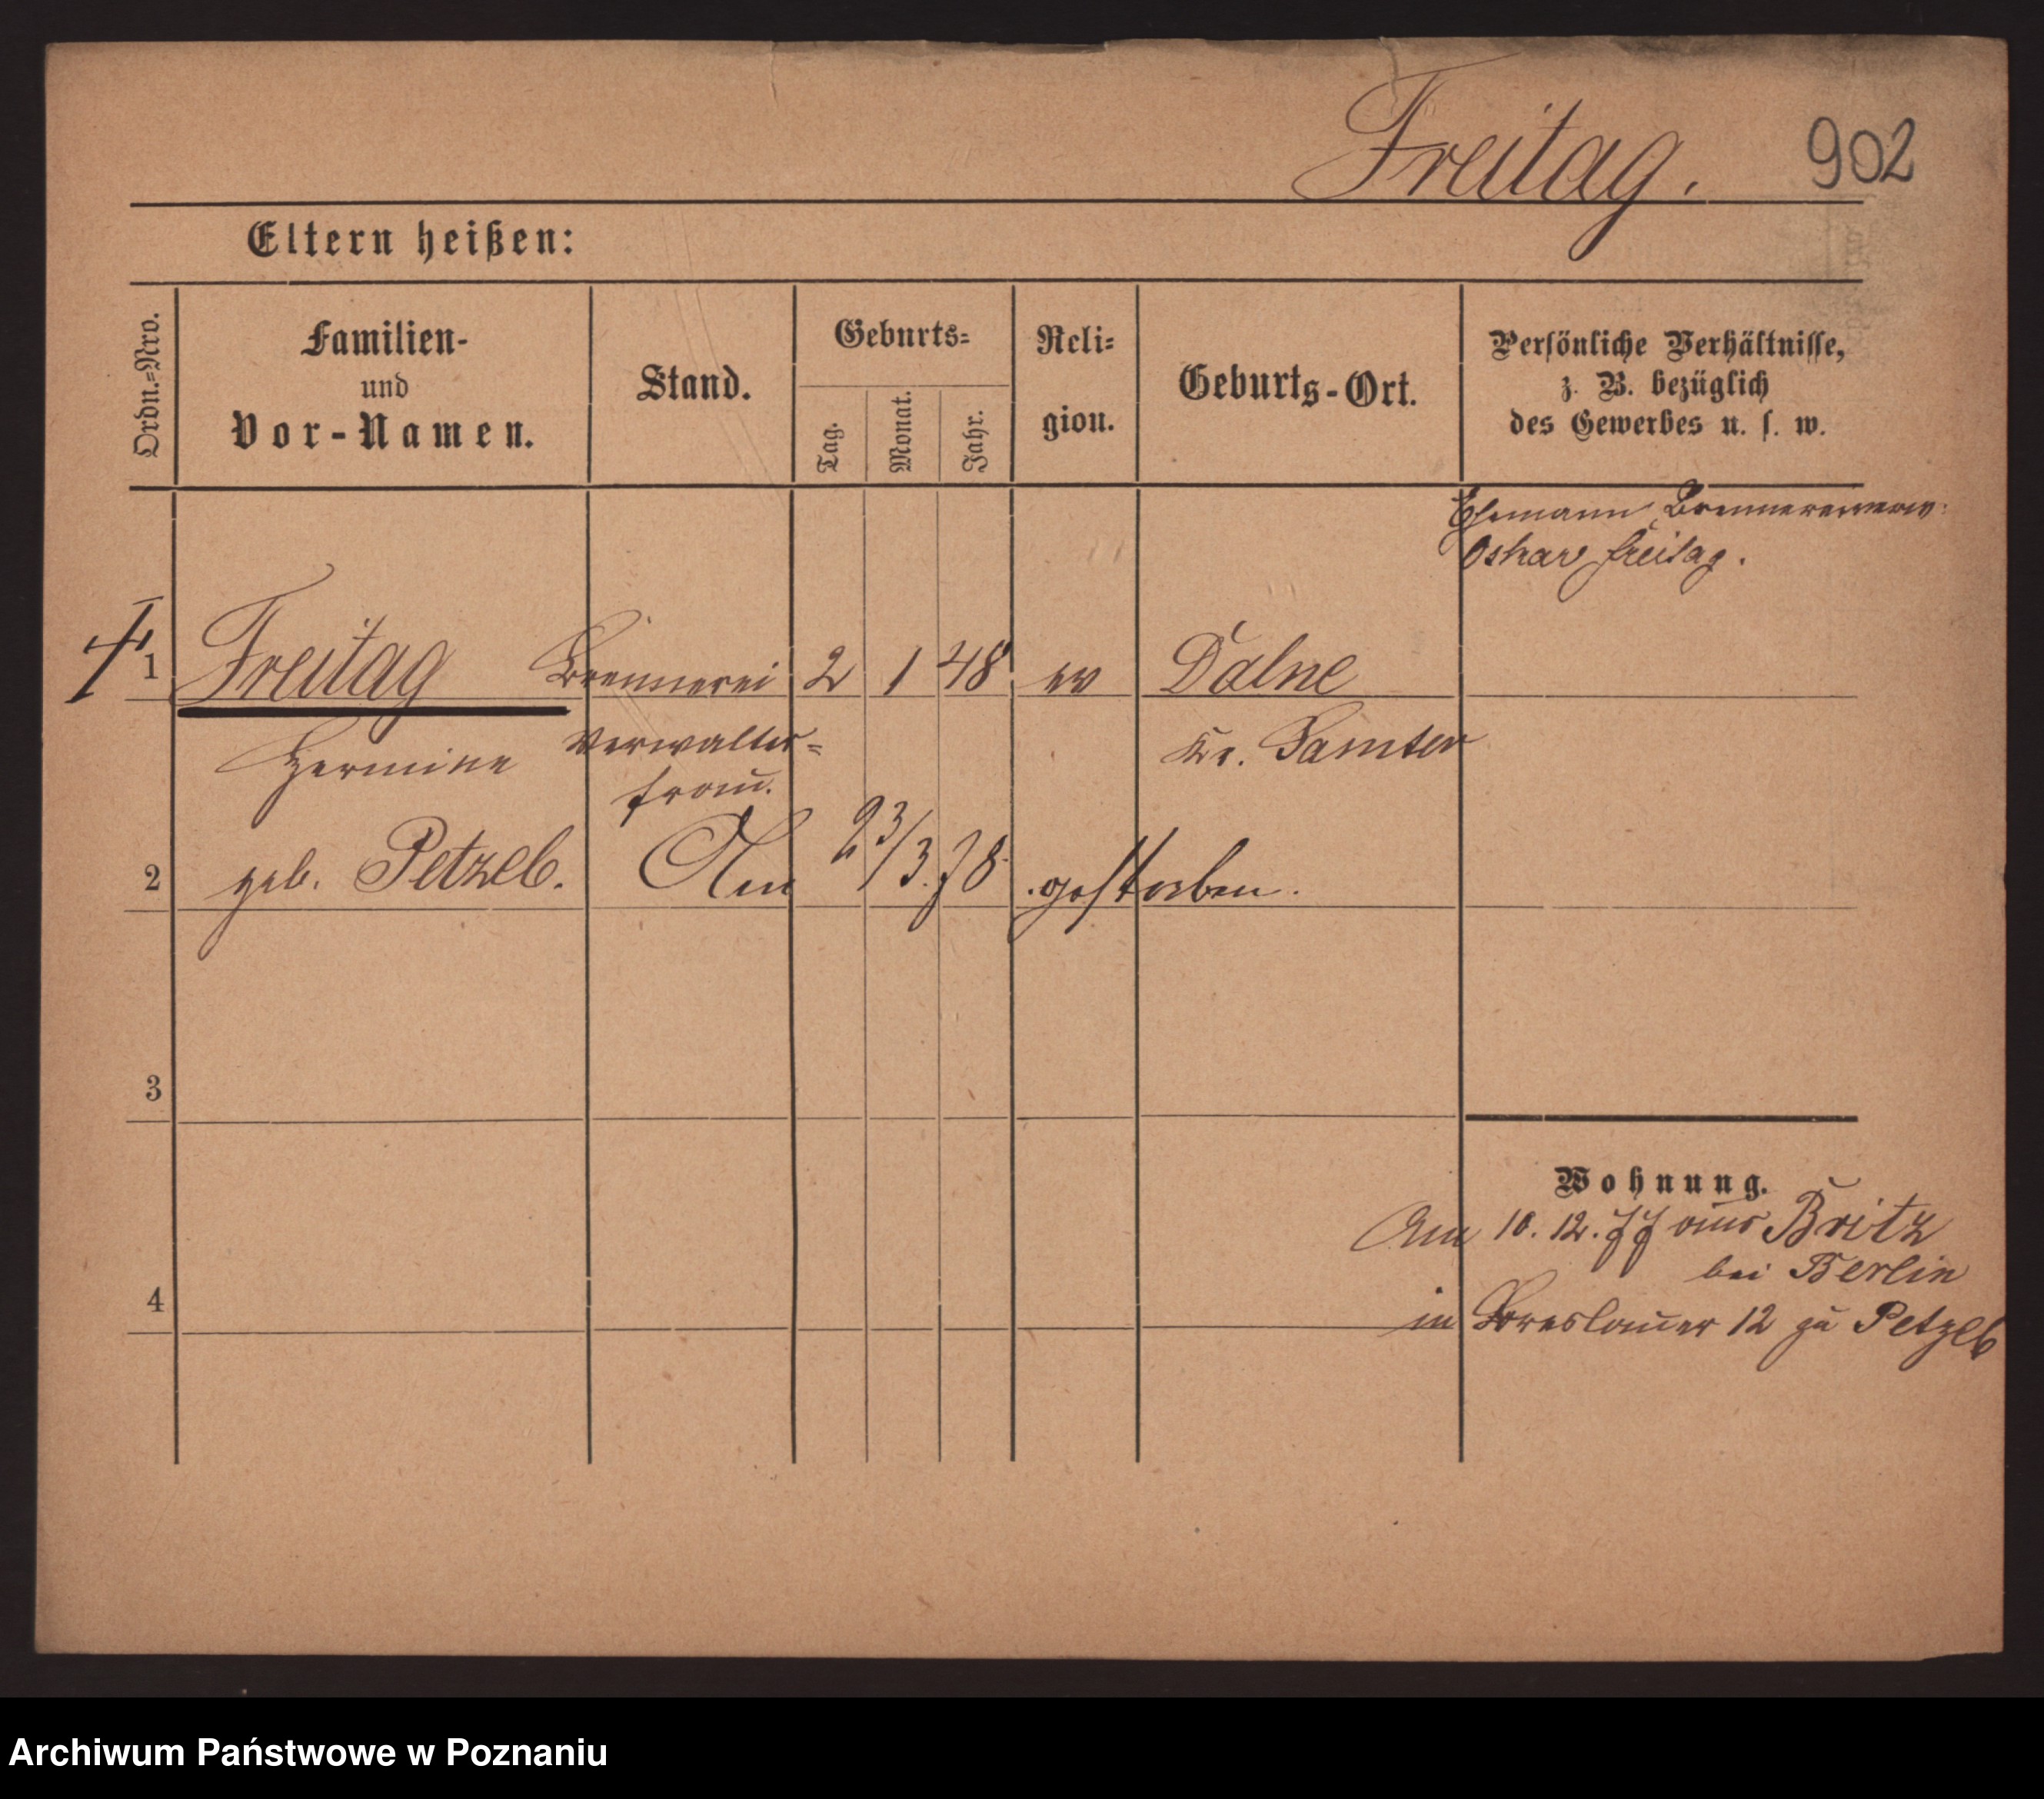 Freitag. 902
Eltern heißen:
Ordn.=Nro.
Familien-
und
Vor-Namen.
Stand.
Geburts=
Tag.
Monat.
Jahr.
Reli=
gion.
Geburts-Ort.
Persönliche Verhältnisse,
z. B. bezüglich
des Gewerbes u. s. w.
Ehemann Brennereiverw:
Oskar Freitag.
1 Freitag Brennerei 2 1 48 ev Dalne
Hermine Verwalter= Kr. Samter
frau.
2 geb. Petzelb. Am 23/3.78 gestorben.
3
Wohnung.
Am 10. 12. 77 aus Britz
bei Berlin
4
in Breslauer 12 zu Petzelb
Archiwum Państwowe w Poznaniu